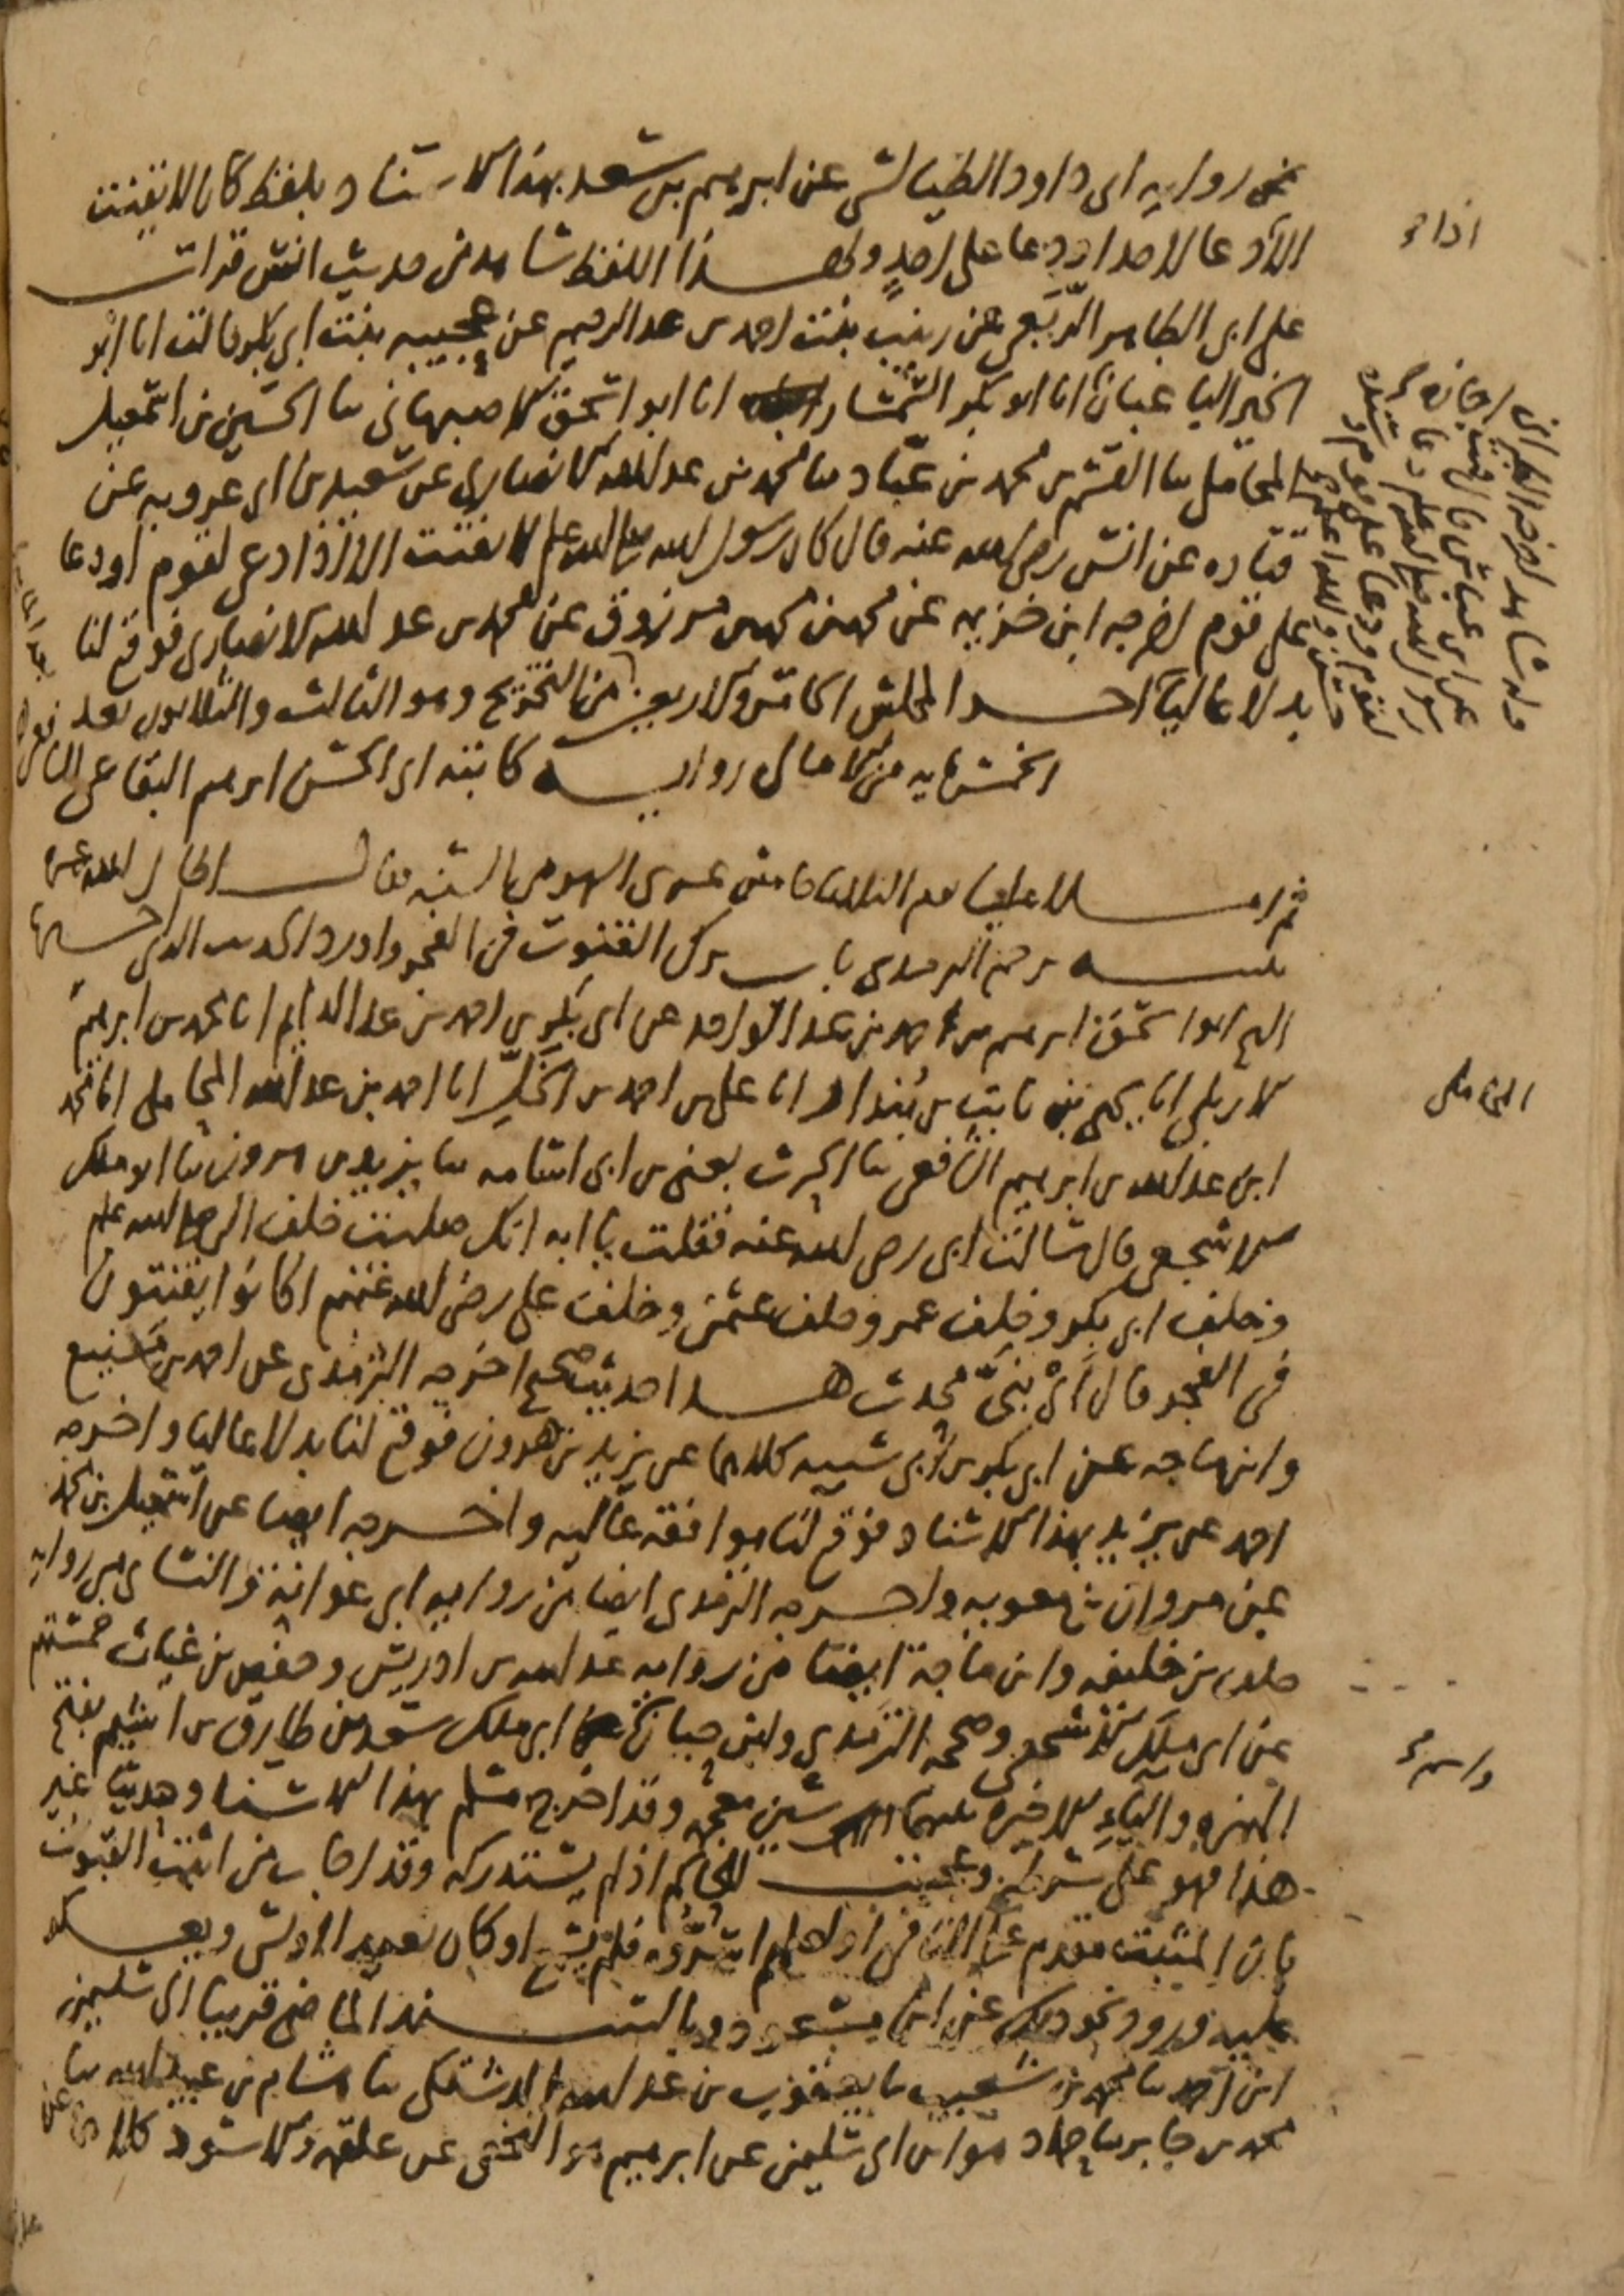 من رواية ابى داود الطيالسى عن ابرهيم بن سعد بهذا الاسناد بلفظ كان لا يقنت
الا اذا دعا لاحد او دعا على احد ولهذا اللفظ شاهد من حديث انس قرات
على ابى الطاهر الربعى عن زينب بنت احمد بن عبد الرحيم عن عجيبه بنت ابى بكر قالت انا ابو
الخير الباغبان انا ابو بكر السمسار انا ابو اسحق الاصبهانى ثنا الحسين بن اسمعيل
المحاملى ثنا القسم بن محمد بن عباد ثنا محمد بن عبد الله الانصارى عن سعيد بن ابى عروبه عن
قتاده عن انس رضى الله عنه قال كان رسول الله صلى الله عليه وسلم لا يقنت الا اذا دعى لقوم او دعا
على قوم اخرجه ابن خزيمه عن محمد بن محمد بن مرزوق عن محمد بن عبد الله الانصارى فوقع لنا
بدلا عاليا اخر المجلس الخامس والاربعين من التخريج وهو الثالث والثلاثون بعد
الخمسمايه من الامالى رواية كاتبه ابى الحسن ابرهيم البقاعى الشافعى
ثم املا علينا يوم الثلاثا خامس عشرى الشهر من السنه فقال اطال الله عمره
ترجم الترمذى باب ترك القنوت فى الفجر واورد الحديث الذى اخبرنا
الشيخ ابو اسحق ابرهيم بن احمد بن عبد الواحد عن ابى بكر بن احمد بن عبد الدايم انا محمد بن ابرهيم
الاربلى انا يحيى بن ثابت بن بندار انا على بن احمد بن الخل انا احمد بن عبد الله المحاملى انا محمد
ابن عبد الله بن ابرهيم الشافعى ثنا الحرث يعنى بن ابى اسامه ثنا يزيد بن هرون ثنا ابو ملك
الاشجعى قال سالت ابى رضى الله عنه فقلت يا ابه انك صليت خلف النبى صلى الله عليه وسلم
وخلف ابى بكر وخلف عمر وخلف عثمن وخلف على رضى الله عنهم اكانوا يقنتون
فى الفجر قال اى بنى محدث هذا حديث صحيح اخرجه الترمذى عن احمد بن منيع
وابن ماجه عن ابى بكر بن ابى شيبه كلاهما عن يزيد بن هرون فوقع لنا بدلا عاليا واخرجه
احمد عن يزيد بهذا الاسناد فوقع لنا موافقه عاليه واخرجه ايضا عن اسمعيل بن محمد
عن مروان بن معويه واخرجه الترمذى ايضا من رواية ابى عوانة والنساى من رواية
خلف بن خليفه وابن ماجة ايضا من رواية عبد الله بن ادريس وحفص بن غياث خمستهم
عن ابى ملك الاشجعى وصححه الترمذى وابن حبان واسم ابى ملك سعد بن طارق بن اشيم بفتح
الهمزه والياء الاخيره بينهما شين معجمه وقد اخرج مسلم بهذا الاسناد حديثا غير
هذا فهو على شرطه وعجبت للحاكم اذ لم يستدركه وقد اجاب من اثبت القنوت
بان المثبت مقدم على النافى او لعلهم اسروه فلم يسمع او كان بعيد الاولى ويعكر
عليه ورود نحو ذلك عن ابن مسعود وبالسند الماضى قريبا الى سليمن
ابن احمد ثنا محمد بن شعيب ثنا يعقوب بن عبد الله الدشتكى ثنا هشام بن عبيد الله ثنا
محمد بن جابر ثنا حماد هو ابن ابى سليمن عن ابرهيم هو النخعى عن علقمه والاسود كلاهما عن
اذا صح
وله شاهد اخرجه الطبرانى
عن ابن عباس قال
رسول الله صلى الله عليه وسلم
لقوم ودعا على قوم
والله اعلم
المحاملى
واسم صح